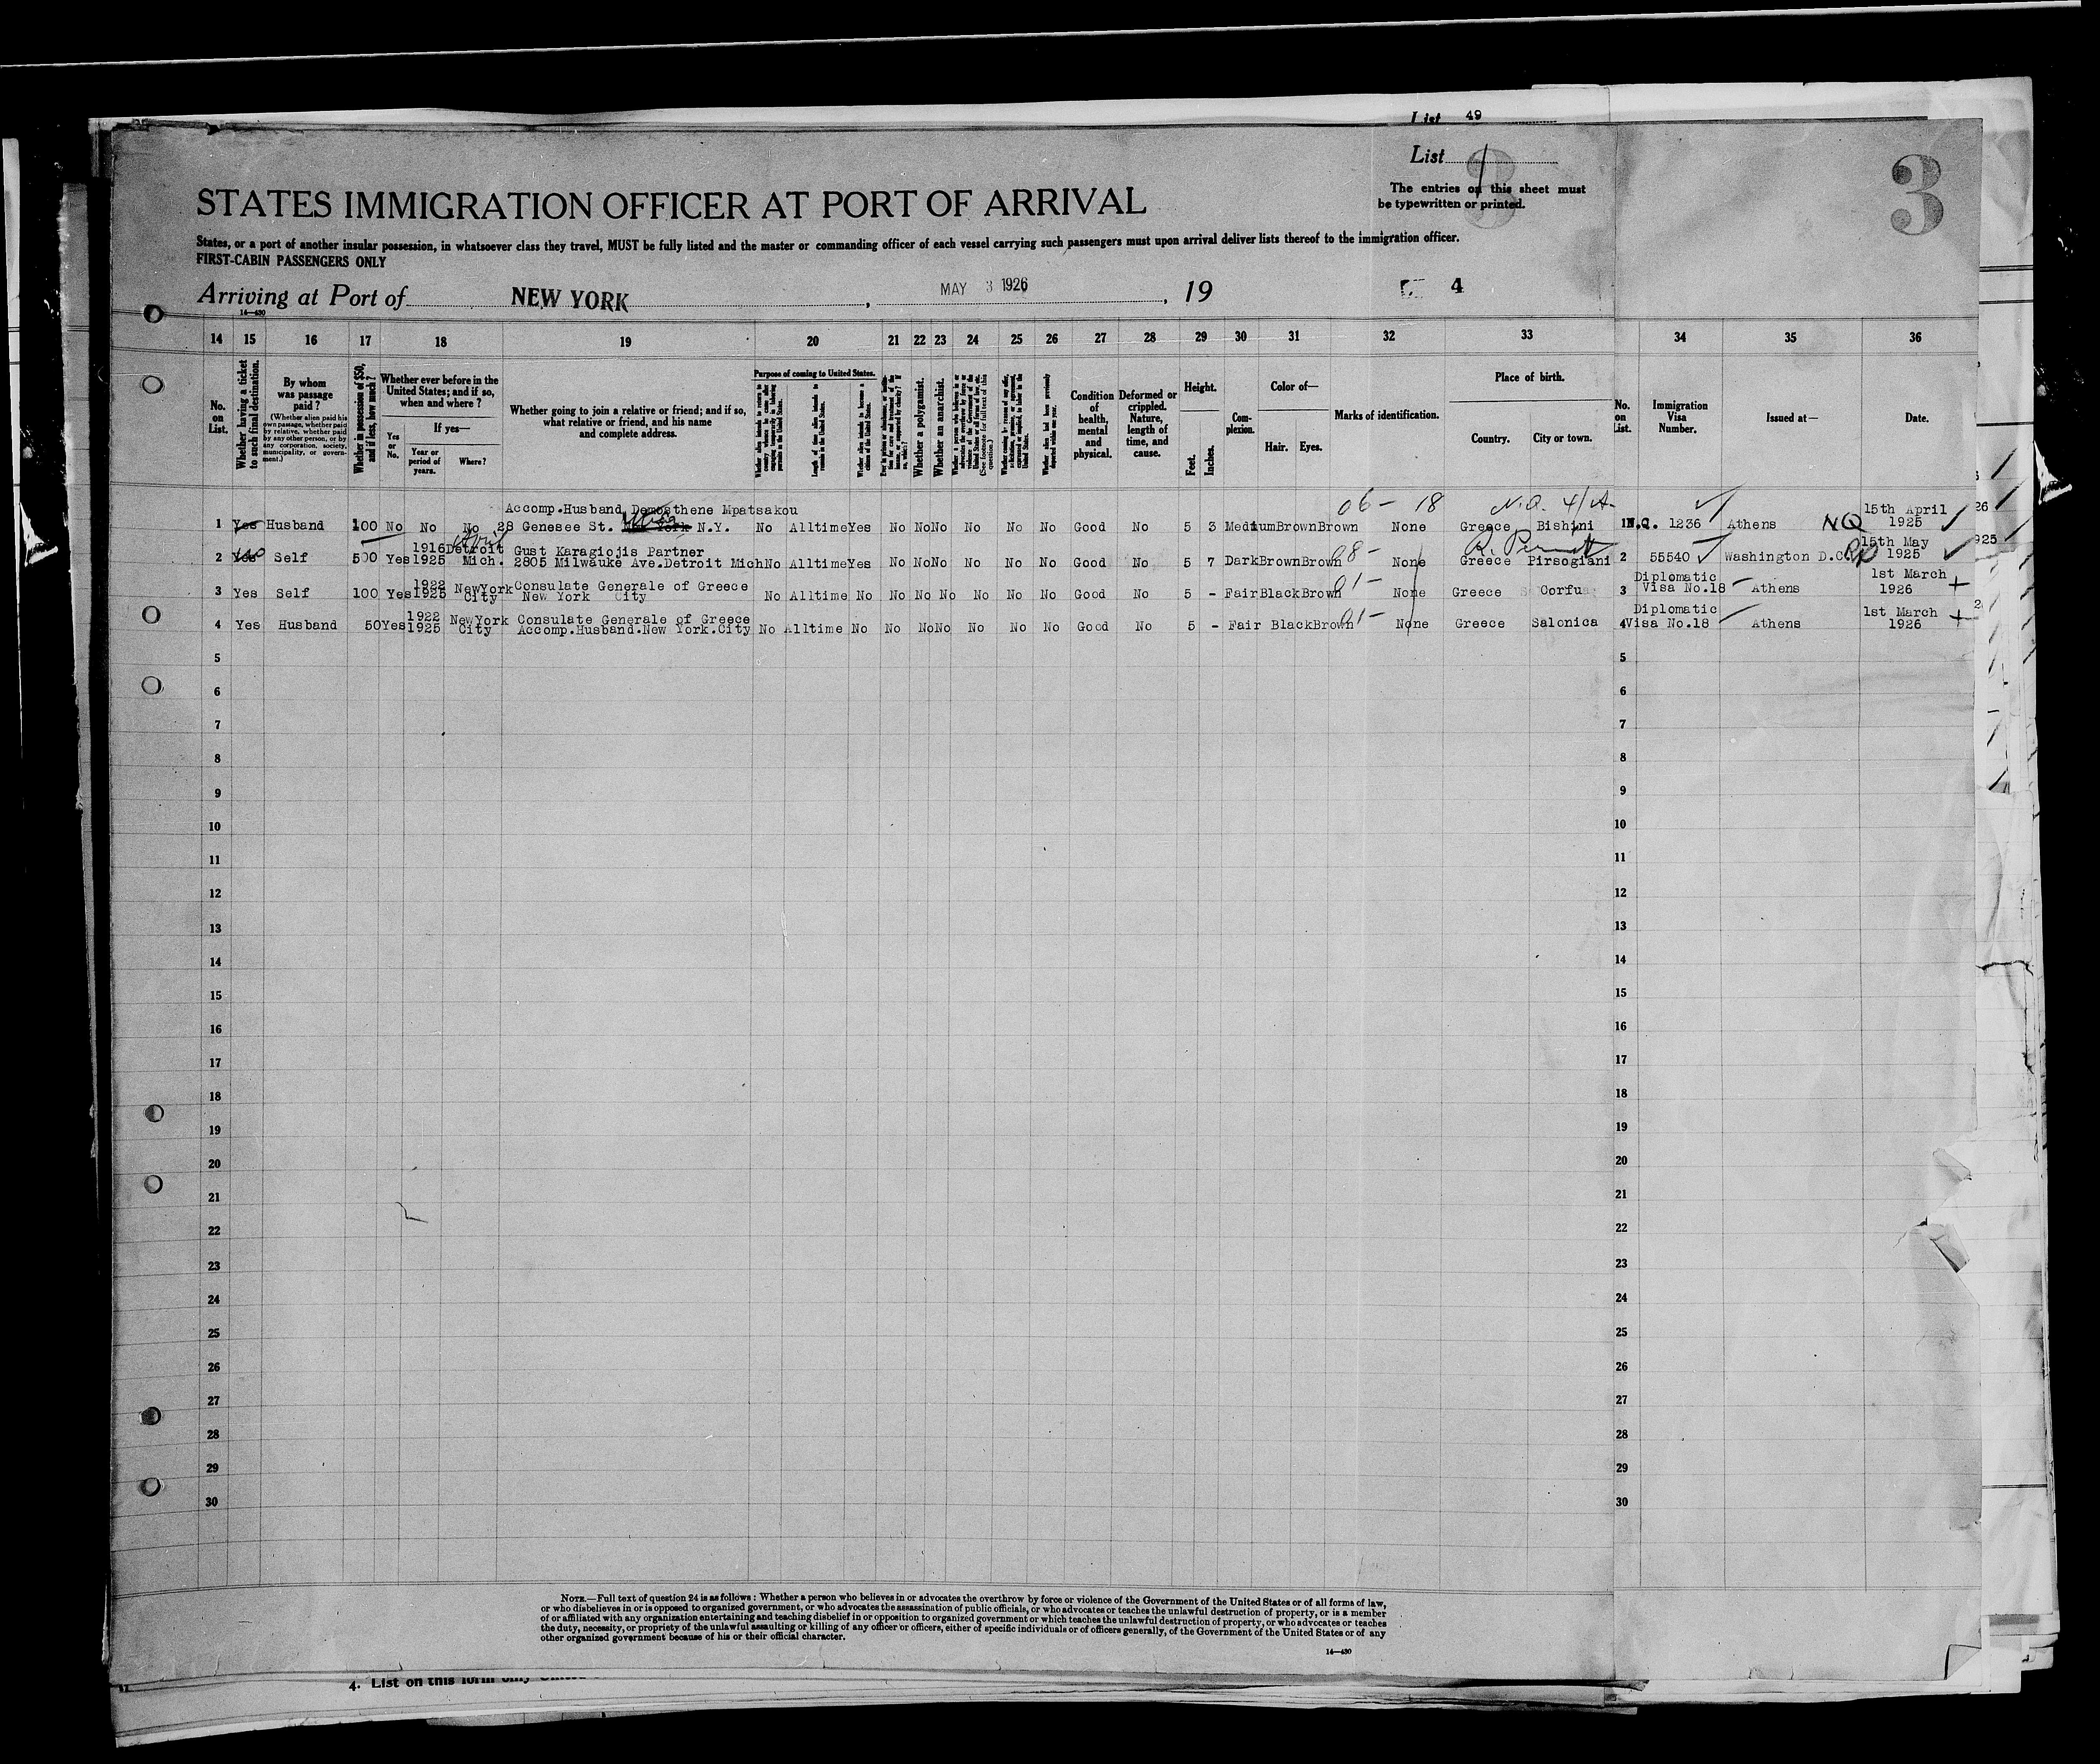 List 49
List 1
3
3
The entries on this sheet must
be typewritten or printed.
STATES IMMIGRATION OFFICER AT PORT OF ARRIVAL
States, or a port of another insular possession, in whatsoever class they travel, MUST be fully listed and the master or commanding officer of each vessel carrying such passengers must upon arrival deliver lists thereof to the immigration officer.
FIRST-CABIN PASSENGERS ONLY
Arriving at Port of NEW YORK, MAY 3 1926, 19
4
14—430
14 15 16 17 18 19 20 21 22 23 24 25 26 27 28 29 30 31 32 33 34 35 36
No. on List.
Whether having a ticket to such final destination.
By whom was passage paid?
(Whether alien paid his own passage, whether paid by relative, whether paid by any other person, or by any corporation, society, municipality, or government.)
Whether in possession of $50, and if less, how much?
Whether ever before in the United States; and if so, when and where?
If yes—
Yes or No.
Year or period of years.
Where?
Whether going to join a relative or friend; and if so, what relative or friend, and his name and complete address.
Purpose of coming to United States.
Length of time alien intends to remain in the United States.
Whether alien intends to become a citizen of the United States.
Whether a polygamist.
Whether an anarchist.
(See footnote for full text of this question.)
Condition of health, mental and physical.
Deformed or crippled. Nature, length of time, and cause.
Height.
Feet.
Inches.
Complexion.
Color of—
Hair. Eyes.
Marks of identification.
Place of birth.
Country.
City or town.
No. on List.
Immigration Visa Number.
Issued at—
Date.
06- 18 N.Q. 4/A-
Accomp.Husband Demosthene Mpatsakou 15th April
1 Yes Husband 100 No No No 28 Genesee St. New York N.Y. No Alltime Yes No No No No No No Good No 5 3 Medium Brown Brown None Greece Bishini 1 N.Q. 1236 Athens NQ 1925
1916 Detroit Gust Karagiojis Partner R. Permit 15th May
2 Yes Self 500 Yes 1925 Mich. 2805 Milwauke Ave.Detroit Mich No Alltime Yes No No No No No No Good No 5 7 Dark Brown Brown None Greece Pirsogiani 2 55540 Washington D.C. 1925
1922 NewYork Consulate Generale of Greece 01- Diplomatic 1st March
3 Yes Self 100 Yes 1925 City New York City No Alltime No No No No No No No Good No 5 - Fair Black Brown None Greece Corfu 3 Visa No.18 Athens 1926
1922 NewYork Consulate Generale of Greece 01- Diplomatic 1st March
4 Yes Husband 50 Yes 1925 City Accomp.Husband.New York.City No Alltime No No No No No No No Good No 5 - Fair Black Brown None Greece Salonica 4 Visa No.18 Athens 1926
5 5
6 6
7 7
8 8
9 9
10 10
11 11
12 12
13 13
14 14
15 15
16 16
17 17
18 18
19 19
20 20
21 21
22 22
23 23
24 24
25 25
26 26
27 27
28 28
29 29
30 30
NOTE.—Full text of question 24 is as follows: Whether a person who believes in or advocates the overthrow by force or violence of the Government of the United States or of all forms of law,
or who disbelieves in or is opposed to organized government, or who advocates the assassination of public officials, or who advocates or teaches the unlawful destruction of property, or is a member
of or affiliated with any organization entertaining and teaching disbelief in or opposition to organized government or which teaches the unlawful destruction of property, or who advocates or teaches
the duty, necessity, or propriety of the unlawful assaulting or killing of any officer or officers, either of specific individuals or of officers generally, of the Government of the United States or of any
other organized government because of his or their official character.
14—430
4. List on this form only